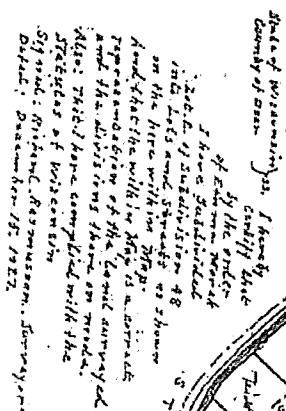 State of Wisconsin } ss
County of Dane
I hereby
certify that
by the order
of
I have subdivided
of Subdivision 48
into Lots and Streets as shown
on the here within Map.
And that the within Map is a correct
representation of the land surveyed
and the divisions there on made.
Also: That I have complied with the
Statutes of Wisconsin
Signed: Rasmusson. Surveyor
Dated, December 15,